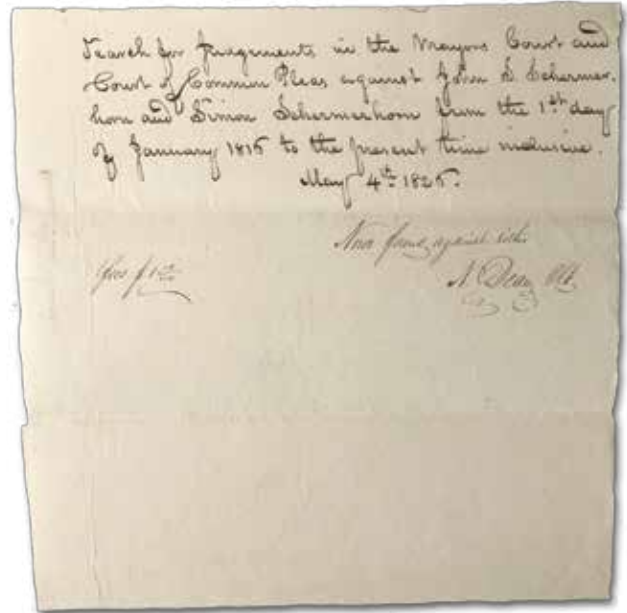 Search for Judgements in the Mayors Court and
Court of Common Pleas against John S. Schermer.
horn and Simon Schermerhorn from the 1st day
of January 1815 to the present time inclusive.
May 4th 1825.
None found against either
N Dean Clk
Fees $